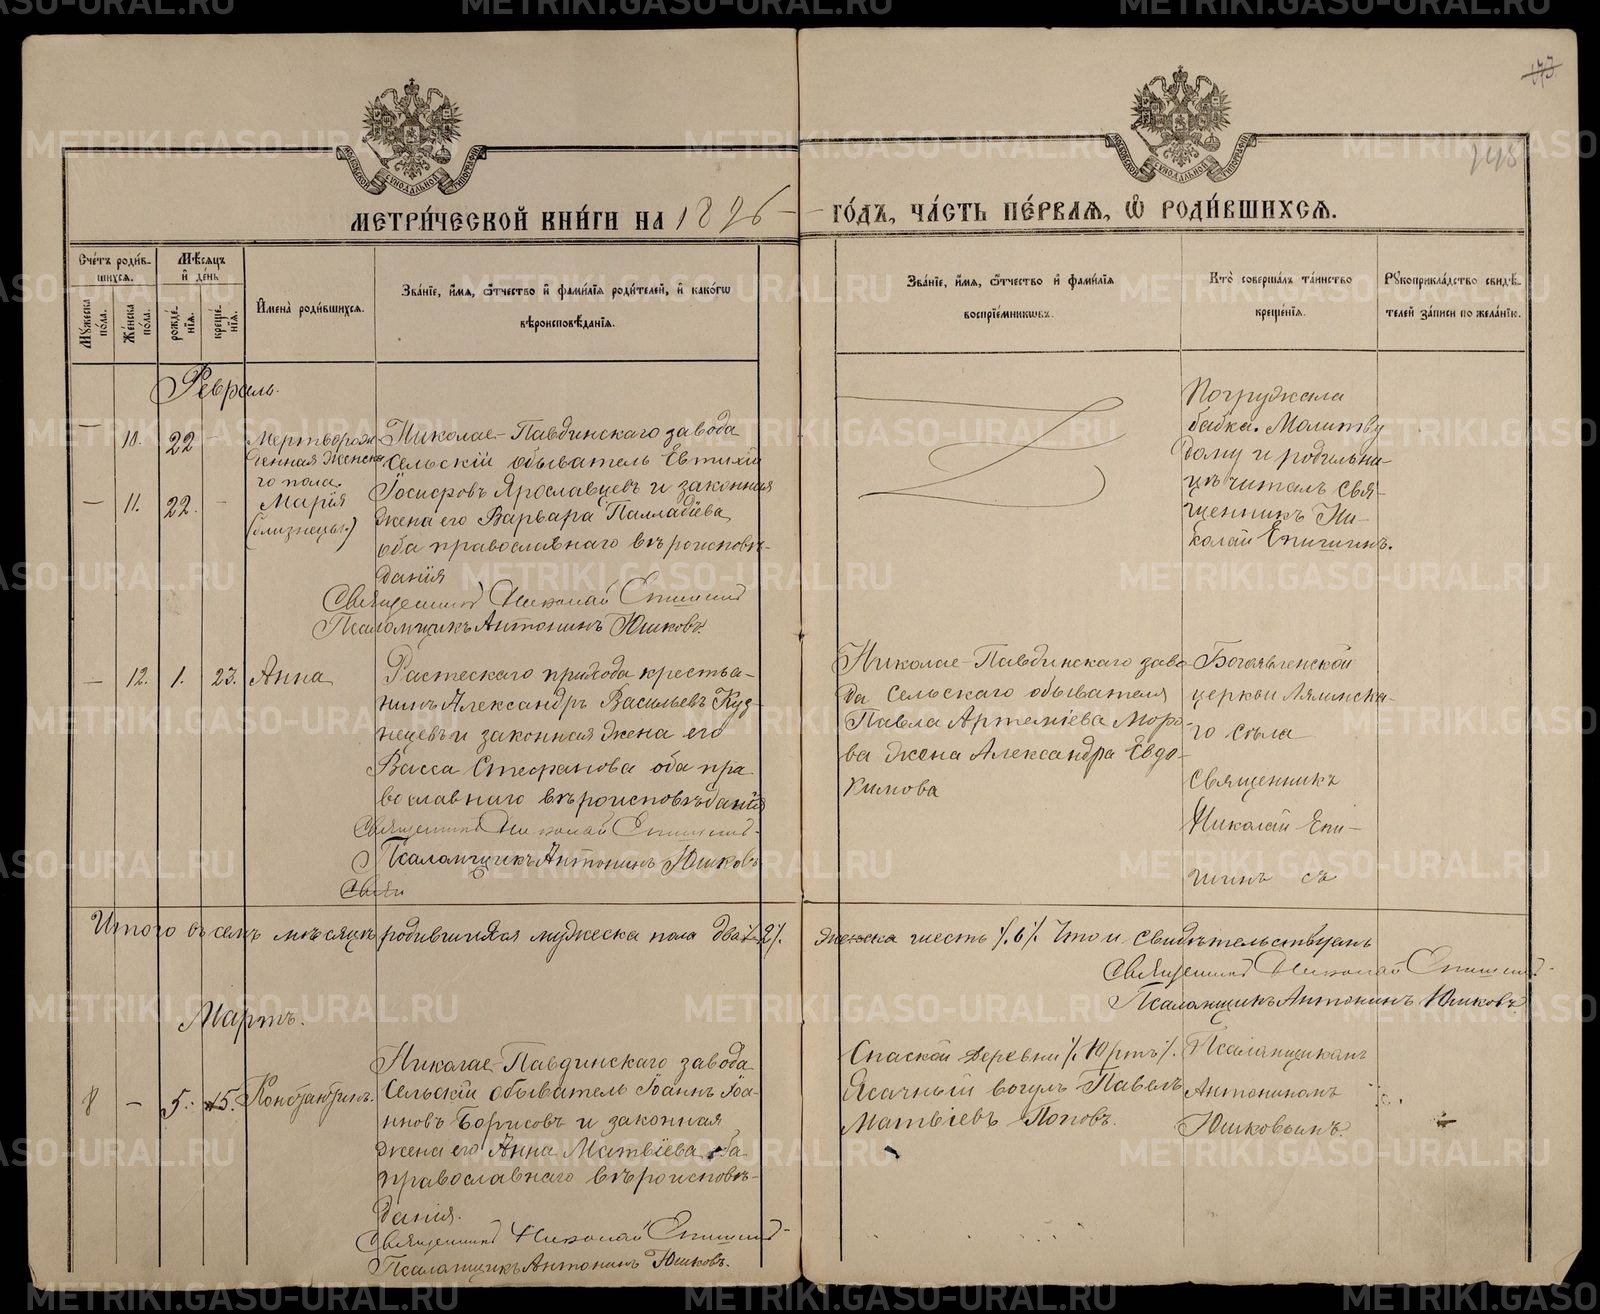 173
245
МЕТРИ́ЧЕСКОЙ КНИ́ГИ НА 1896 ГО́ДЪ, ЧА́СТЬ ПЕ́РВАЯ, Ѽ РОДИ́ВШИХСЯ.
Сче́тъ роди́вшихся.
Мѣ́сяцъ и де́нь
Мꙋ́жеска по́ла.
Же́нска по́ла.
рожде́нїя.
креще́нїя.
Имена̀ роди́вшихся.
Зва́нїе, и́мя, ѻ́тчество и фами́лїя роди́телей, и како́гѡ вѣроисповѣ́данїя.
Зва́нїе, и́мя, ѻ́тчество и фами́лїя воспрїе́мникѡвъ.
Кто̀ соверша́лъ та́инство креще́нїя.
Рꙋкоприкла́дство свидѣ́телей за́писи по жела́нїю.
Февраль.
— 10. 22 —
Мертворож
денная женска
го пола.
— 11. 22. —
Марія
(близнецы.)
Николае-Павдинскаго завода
Сельскій обыватель Евтихій
Іосифовъ Ярославцевъ и законная
жена его Варвара Палладіева
оба православнаго вѣроисповѣ-
данія
Священникъ Николай Епишинъ
Псаломщикъ Антонинъ Юшковъ.
Погружала
бабка. Молитву
дому и родильни-
цѣ читалъ Свя-
щенникъ Ни-
колай Епишинъ.
— 12. 1. 23. Анна
Растескаго прихода крестья-
нинъ Александръ Васильевъ Куз-
нецевъ и законная жена его
Васса Стефанова оба пра
вославнаго вѣроисповѣданія
Священникъ Николай Епишинъ
Псаломщикъ Антонинъ Юшковъ
Николае-Павдинскаго заво-
да Сельскаго обывателя
Павла Артеміева Моро-
ва жена Александра Евдо-
кимова
Богоявленской
церкви Лялинска-
го села
Священникъ
Николай Епи-
шинъ съ
Итого въ семъ мѣсяцѣ родившихся мужеска пола два ⁒ 2 ⁒ женска шесть ⁒ 6 ⁒ Что и свидѣтельствуемъ
Священникъ Николай Епишинъ
Псаломщикъ Антонинъ Юшковъ
Мартъ.
8 — 5. 15. Константинъ.
Николае-Павдинскаго завода
Сельскій обыватель Іоаннъ Іоа-
нновъ Борисовъ и законная
жена его Анна Матвіева оба
православнаго вѣроисповѣ-
данія.
Священникъ Николай Епишинъ
Псаломщикъ Антонинъ Юшковъ.
Спаской деревни ⁒ Юртъ ⁒
Ясачный вогулъ Павелъ
Матвіевъ Поповъ.
Псаломщикомъ
Антониномъ
Юшковымъ.
METRIKI.GASO-URAL.RU